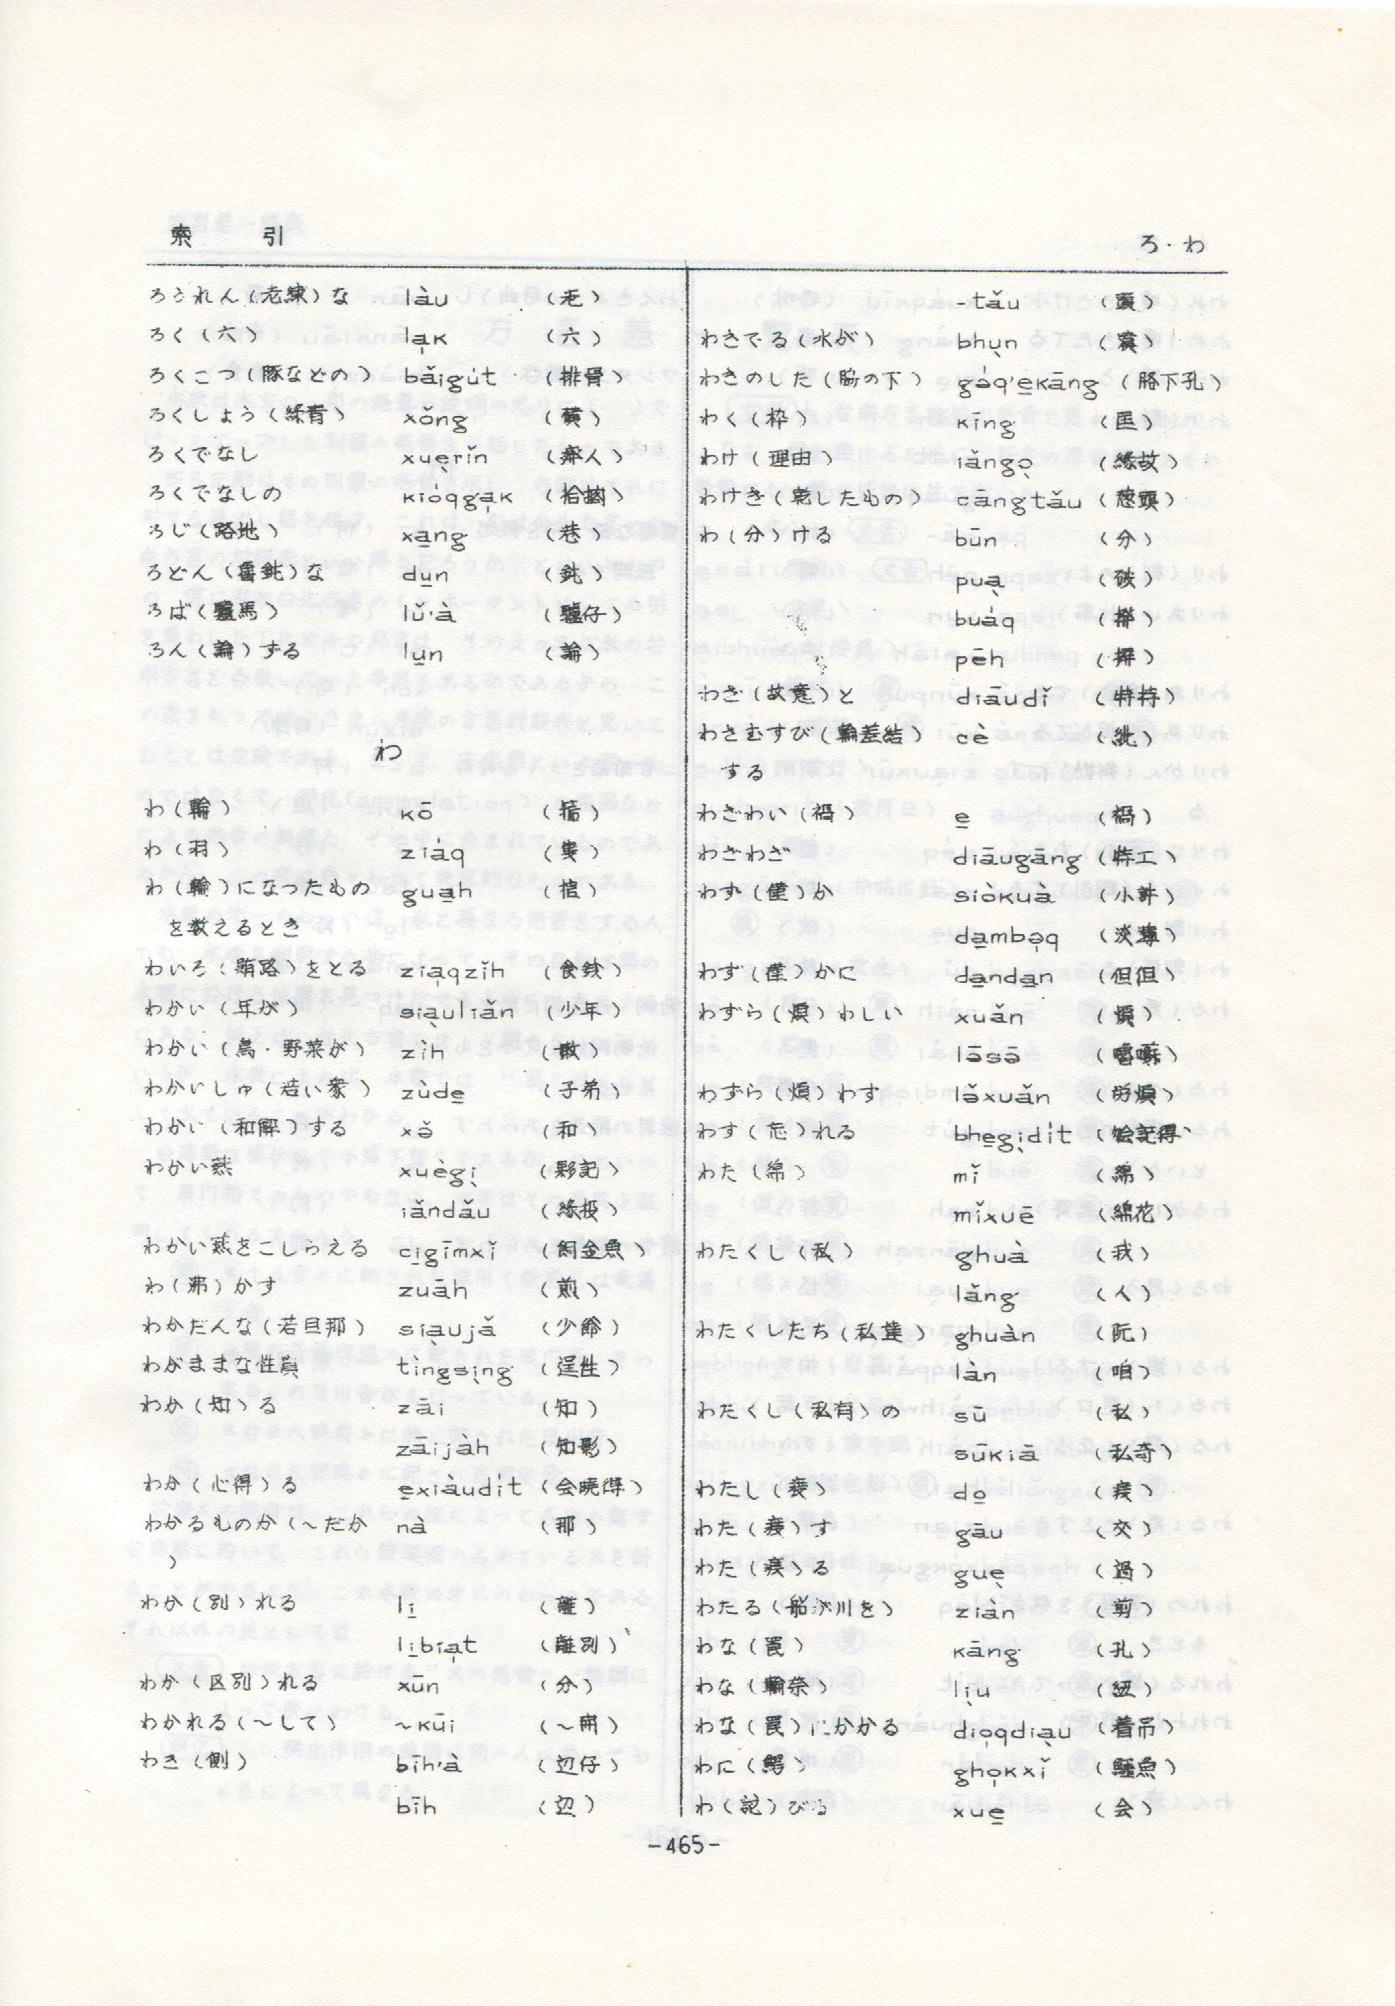 索 引
ろ・わ
ろうれん（老練）な làu （老）
ろく（六） la̍k （六）
ろくこつ（豚などの） băigút （排骨）
ろくしょう（緑青） xŏng
ろくでなし xuẹrĭn
ろくでなしの kióqgạ́k
ろじ（路地） xa̱ng （巷）
ろどん（魯鈍）な du̱n （鈍）
ろば（驢馬） lŭ'à （驢仔）
ろん（論）ずる lu̱n （論）
わ
わ（輪） kō （箍）
わ（羽） ziáq （隻）
わ（輪）になったもの gua̱h
を数えるとき
わいろ（賄路）をとる ziạqzĭh （食銭）
わかい（年が） siạuliăn （少年）
わかい（鳥・野菜が） zìh
わかいしゅ（若い衆） zùde̱ （子弟）
わかい（和解）する xə̆ （和）
わかい燕 xuègị （夥記）
iăndău （緣投）
わかい燕をこしらえる ci̱gīmxĭ （飼金魚）
わ（沸）かす zuāh （煎）
わかだんな（若旦那） siạujǎ （少爺）
わがままな性質 tìngsịng （逞性）
わか（知）る zāi （知）
zāijàh （知影）
わか（心得）る e̱xiàudít （会暁得）
わかるものか（～だか nà （那）
）
わか（別）れる li̱ （離）
li̱biạt （離別）
わか（区別）れる xūn （分）
わかれる（～して） ～kūi （～開）
わき（側） bīh'à （辺仔）
bīh （辺）
-tău （頭）
わきでる（水が） bhụn
わきのした（脇の下） gə́q'e̱kāng （胳下孔）
わく（枠） kīng （匡）
わけ（理由） iăngọ （緣故）
わけぎ（乾したもの） cāngtău （葱頭）
わ（分）ける būn （分）
puạ （破）
buáq
pēh
わざ（故意）と diāudĭ
わさむすび（輪差結） cè （紕）
する
わざわい（禍） e̱ （禍）
わざわざ diāugāng
わず（僅）か siòkuà （小許）
da̱mbə̱q （淡薄）
わず（僅）かに da̱nda̱n （但但）
わずら（煩）わしい xuăn （煩）
lōsō （囉嗦）
わずら（煩）わす lə̆xuăn （労煩）
わす（忘）れる bhe̱gịdít （絵記得）
わた（綿） mĭ （綿）
mĭxuē （綿花）
わたくし（私） ghuà （我）
lăng （人）
わたくしたち（私達） ghuàn （阮）
làn （咱）
わたくし（私有）の sū （私）
sūkiā （私奇）
わたし（渡） do̱ （渡）
わた（渡）す gāu （交）
わた（渡）る guẹ （過）
わたる（船が川を） ziàn （剪）
わな（罠） kāng （孔）
わな（輪奈） liụ （紐）
わな（罠）にかかる diọqdiạu （着吊）
わに（鰐） ghọkxĭ
わ（詫）びる xue̱ （会）
-465-